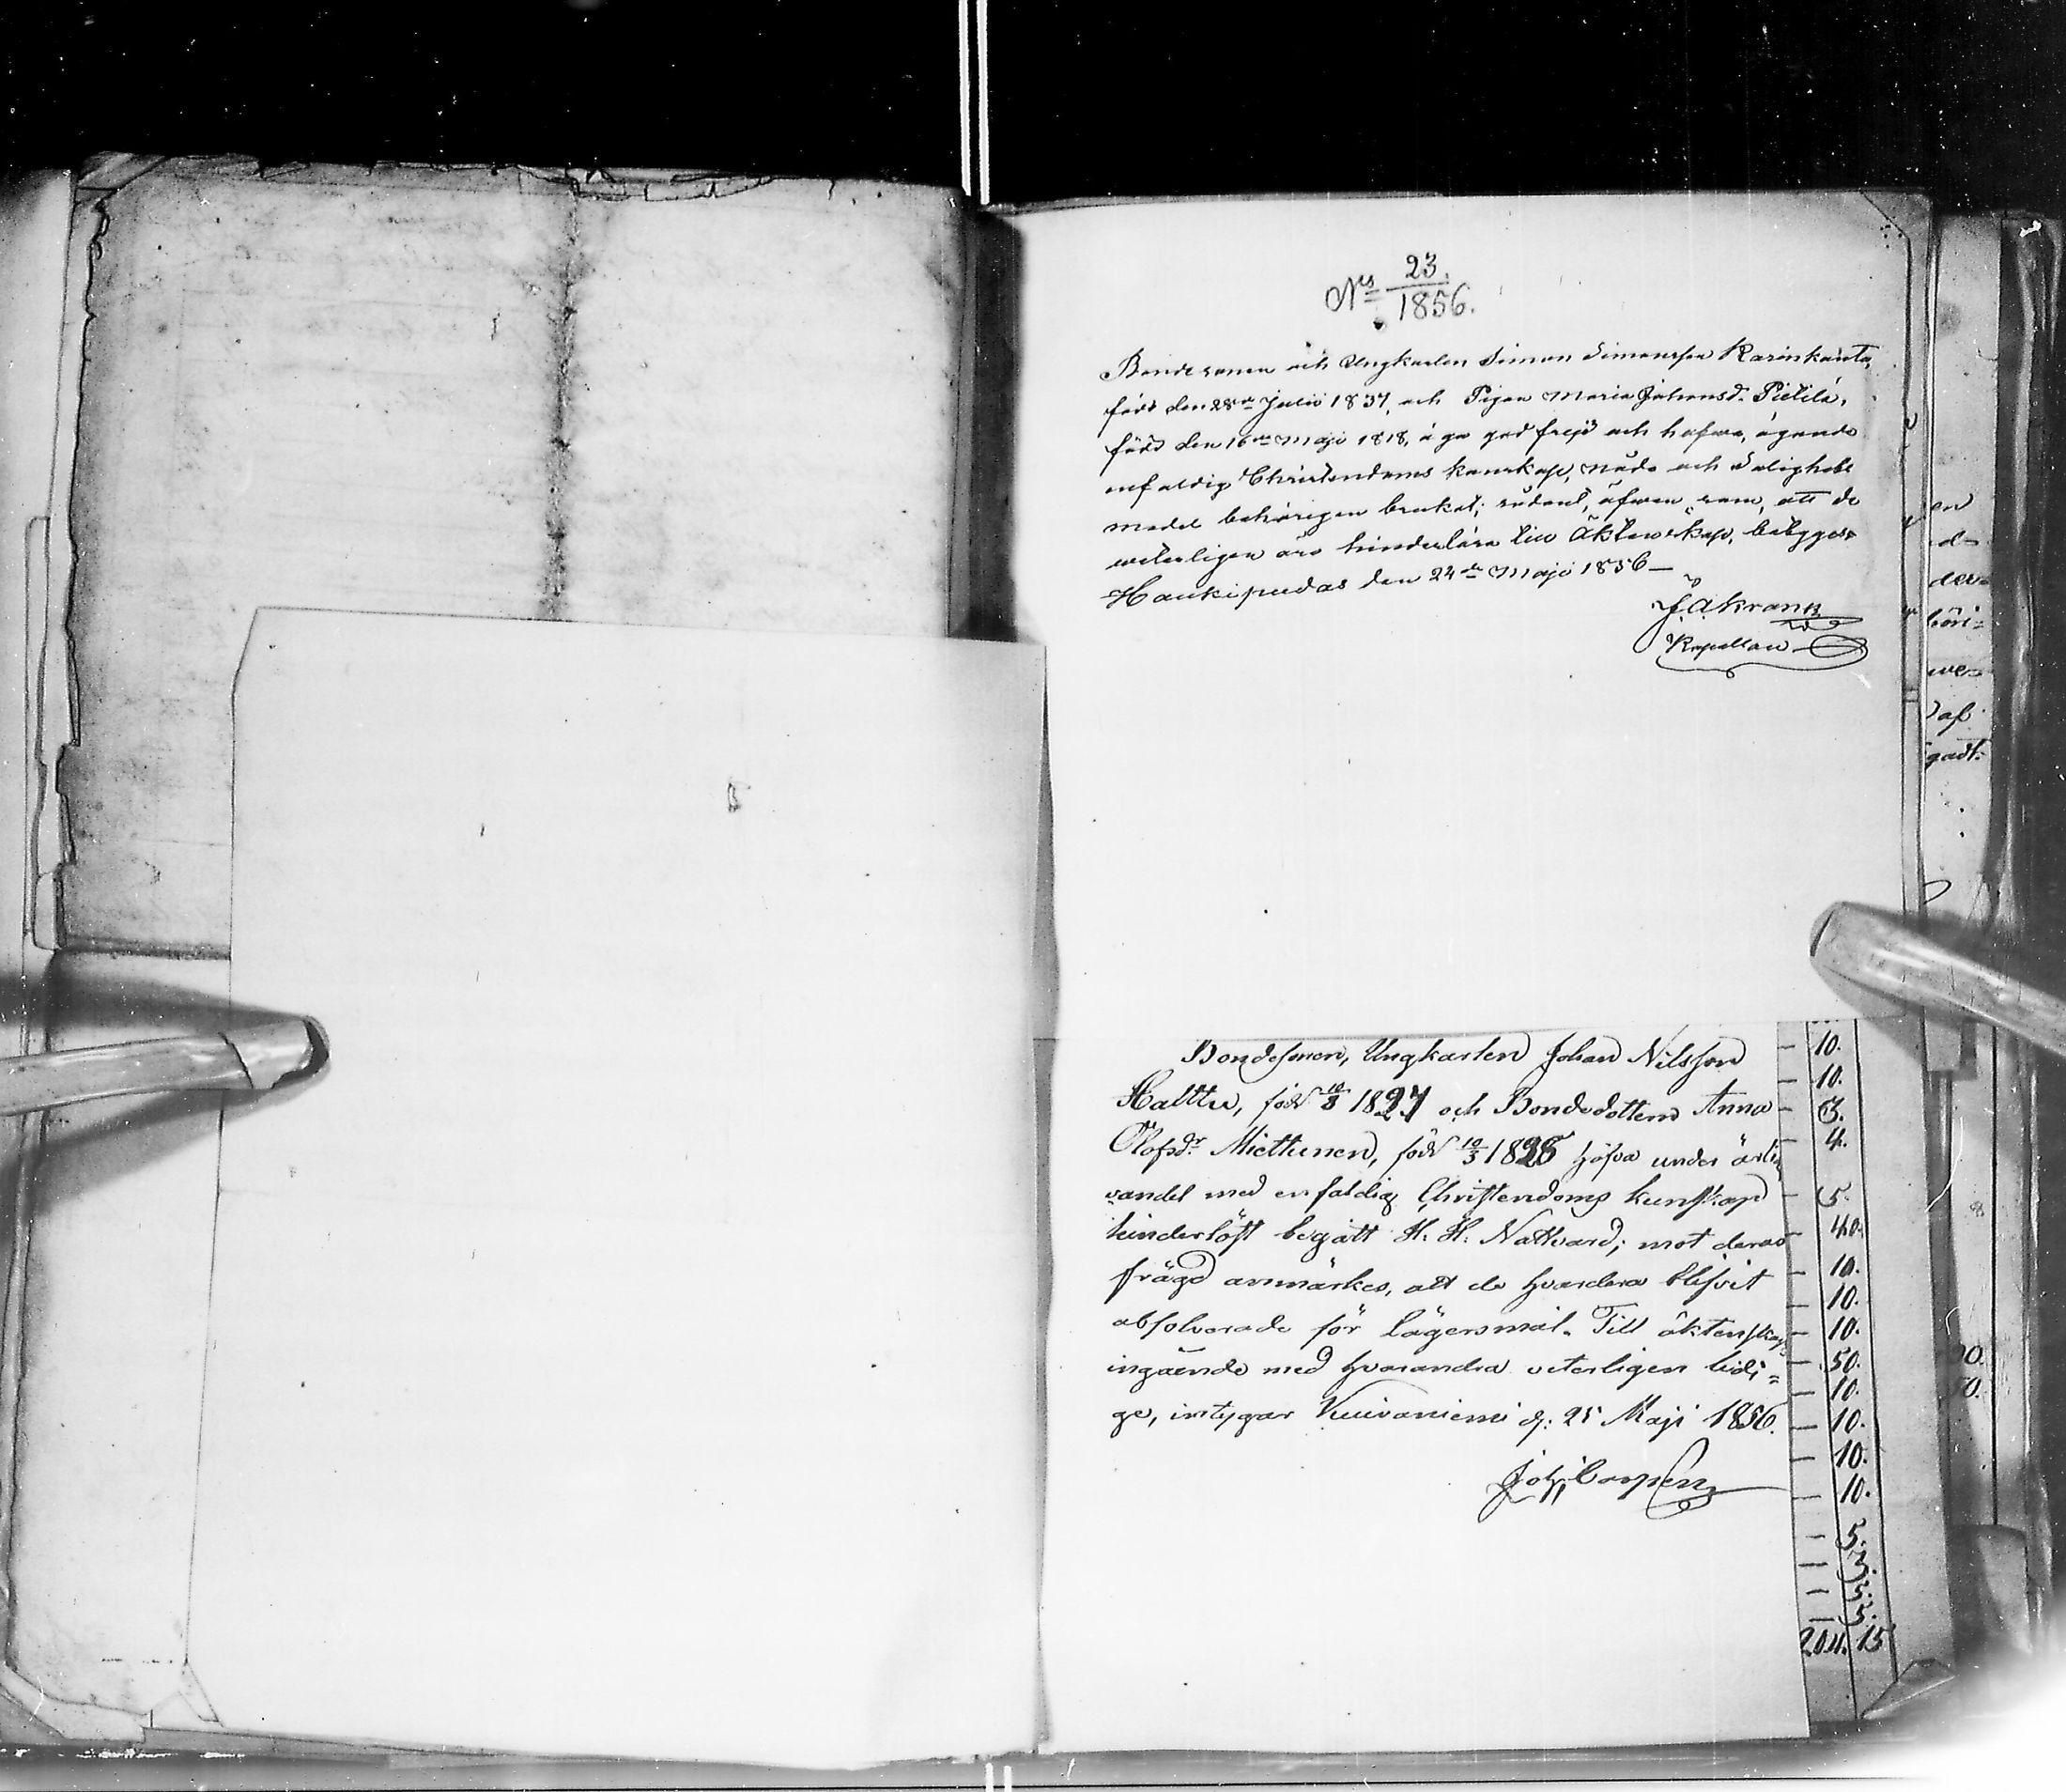 N:s 23.
1856.
Bondesonen och Ungkarlen Simon Simonsson Karinkanta,
född den 28:de Julii 1837, och Pigan Maria Johansd. Pietilä,
född den 16:de Maji 1818, äga god frejd och hafva, ägande
enfaldig Christendoms kunskap, nåde och Salighets
medel behörigen brukat; sådant, äfven som, att de
veterligen äro hinderlösa till Äktenskap, betygges.
Haukipudas den 24:de Maji 1856 —
Kapellan
Bondesonen, Ungkarlen Johan Nilsson
Halttu, född 10/8 1827 och Bondedottern Anna
Olofsdr Miettunen, född 10/3 1828 hafva under ärlig
vandel med enfaldig Christendoms kunskap
hinderlöst begått H. H. Nattvard; mot deras
frägd anmärkes, att de hvardera blifvit
absolverade för lägersmål. Till äktenskaps
ingående med hvarandra veterligen ledi=
ge, intygar Kuivaniemi d: 25 Maji 1856.
Joh Casp
10.
10.
3.
4.
5.
40.
10.
10.
10.
50.
10.
10.
10.
10.
5.
204. 15